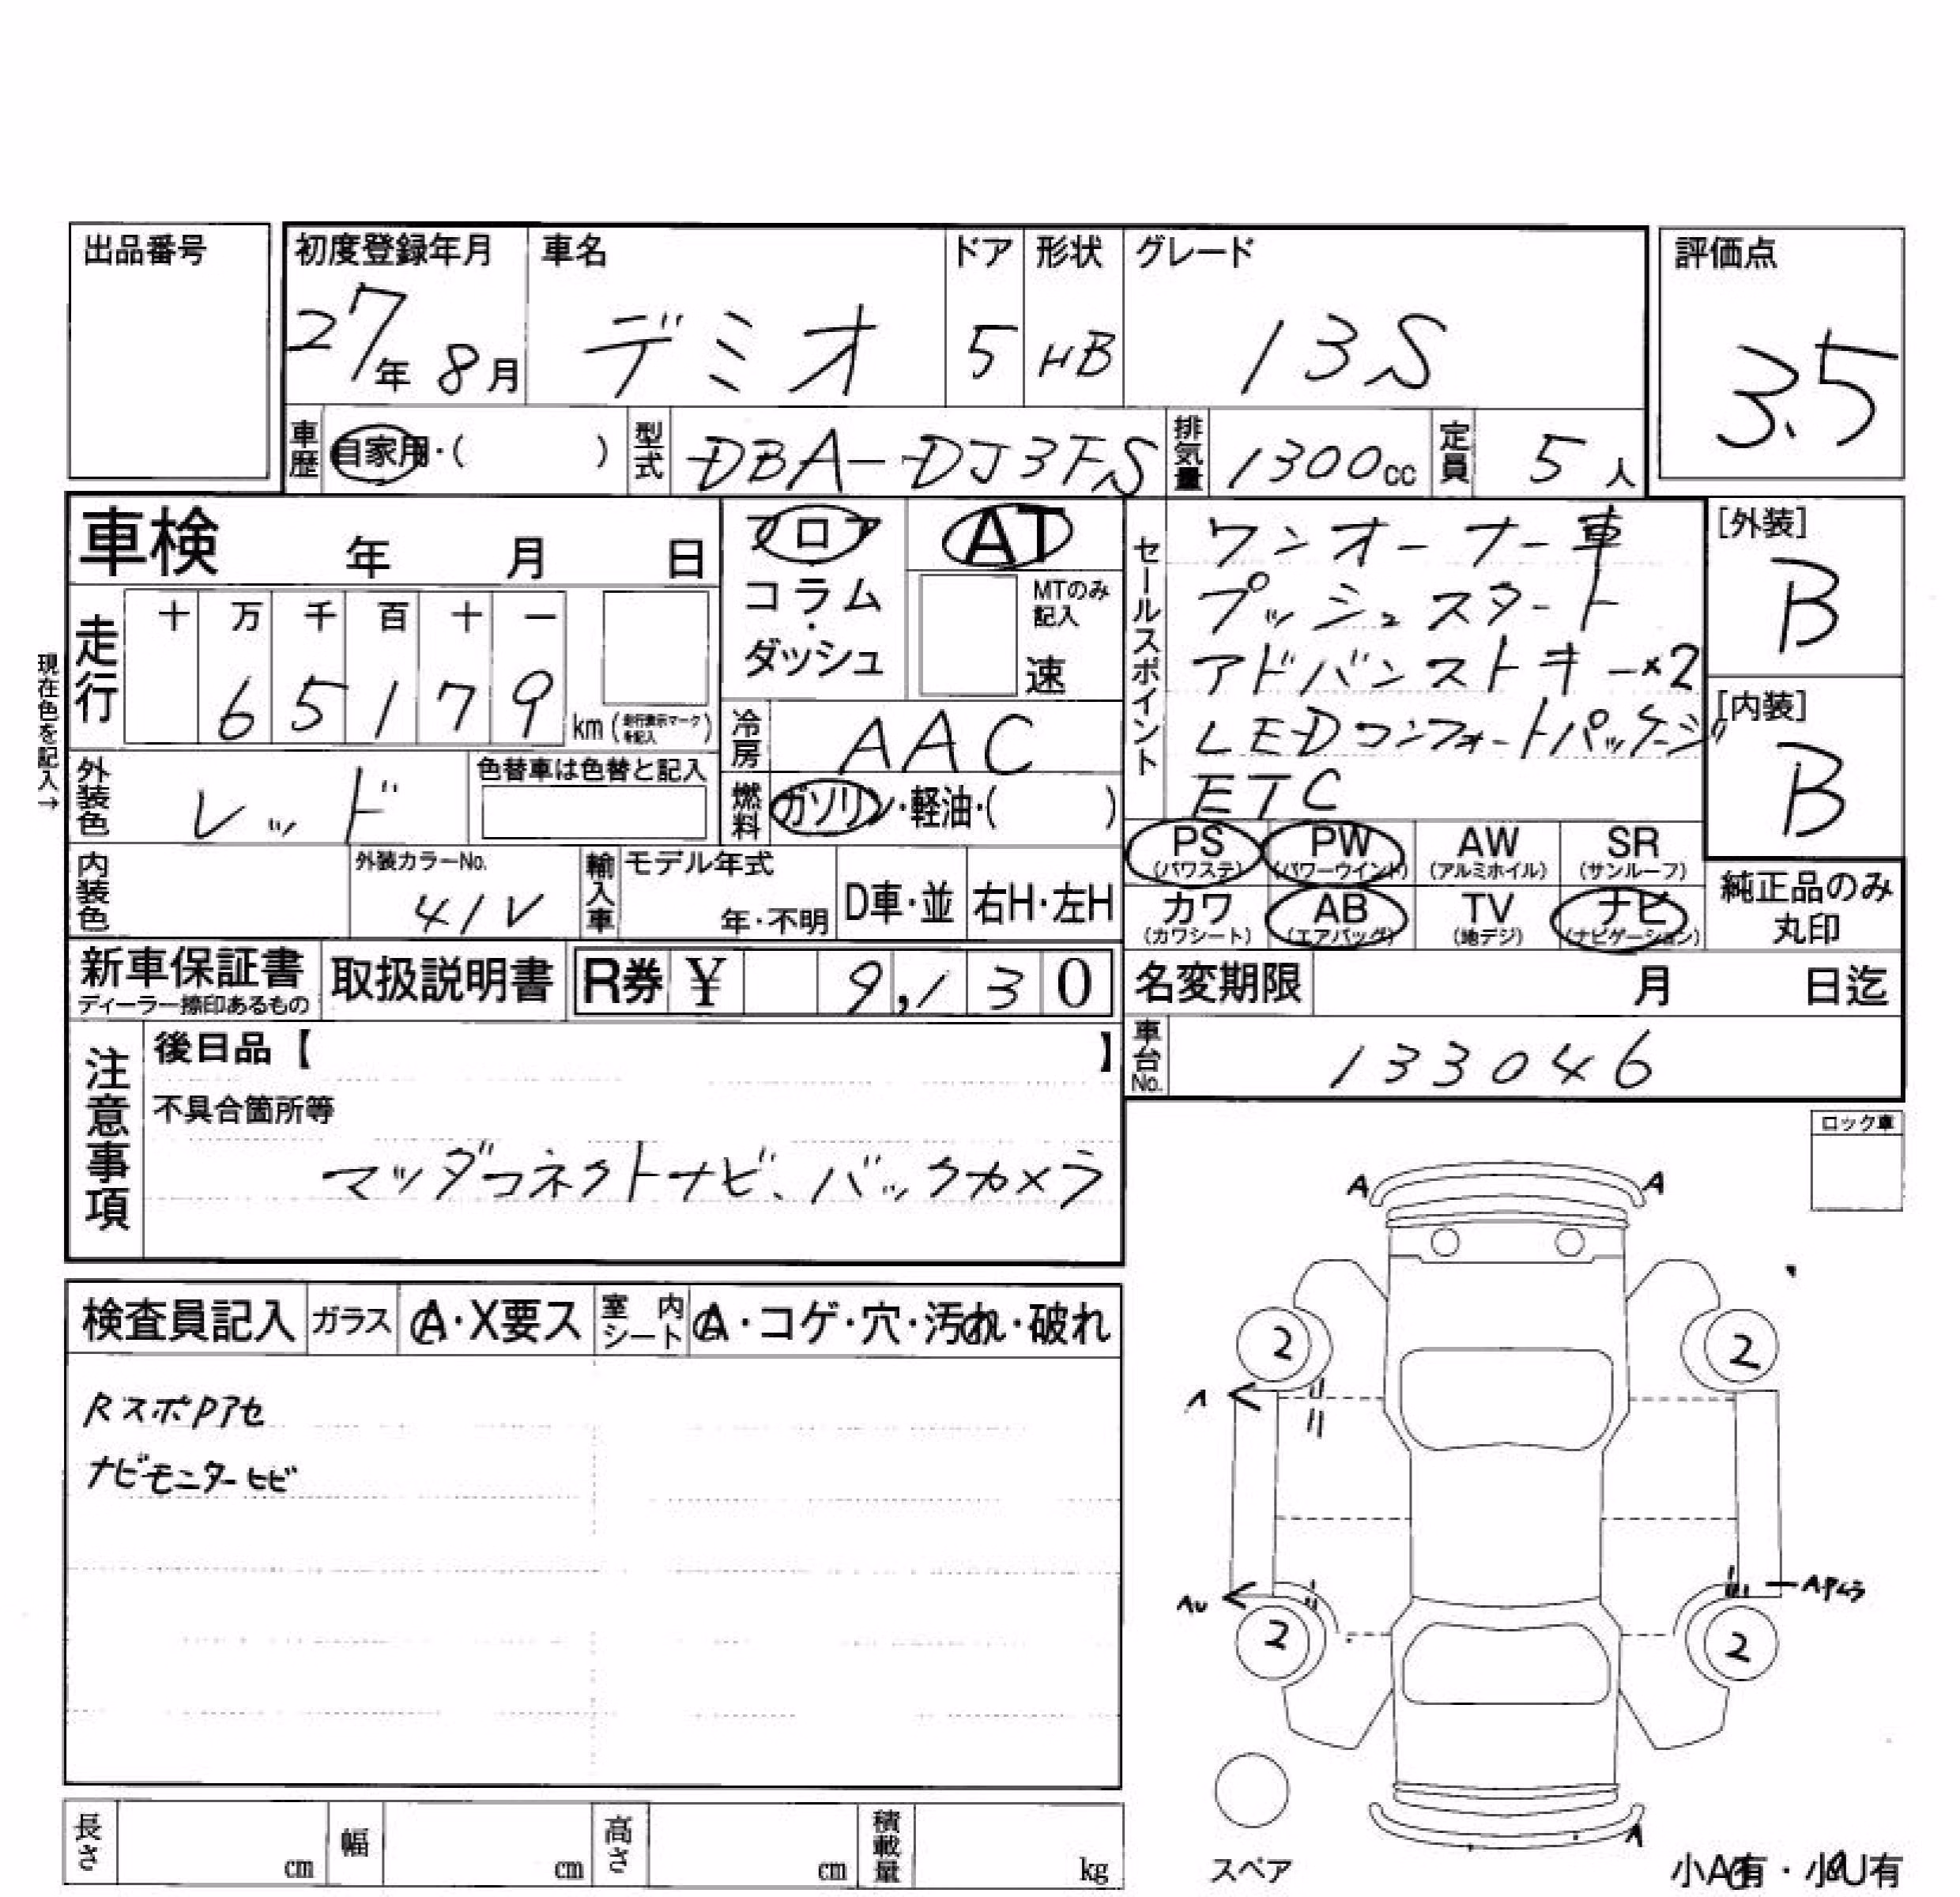 出品番号
初度登録年月 車名 ドア 形状 グレード 評価点
27年 8月 デミオ 5 HB 13S 3.5
車歴 自家用・( ) 型式 DBA-DJ3FS 排気量 1300cc 定員 5人
車検 年 月 日
フロア・コラム・ダッシュ
AT
MTのみ記入
速
セールスポイント
ワンオーナー車
プッシュスタート
アドバンストキー×2
LEDコンフォートパッケージ
ETC
[外装]
B
[内装]
B
現在色を記入→
走行 十 万 千 百 十 一
6 5 1 7 9 km (走行表示マークを記入)
冷房 AAC
外装色 レッド 色替車は色替と記入
燃料 ガソリン・軽油・( )
PS (パワステ) PW (パワーウインド) AW (アルミホイル) SR (サンルーフ)
カワ (カワシート) AB (エアバッグ) TV (地デジ) ナビ (ナビゲーション)
純正品のみ丸印
内装色 外装カラーNo. 41V 輸入車 モデル年式 年・不明 D車・並 右H・左H
新車保証書 ディーラー捺印あるもの 取扱説明書 R券 ¥ 9,130
名変期限 月 日迄
車台No. 133046
注意事項
後日品【 】
不具合箇所等
マッダコネクトナビ、バックカメラ
ロック車
A A
検査員記入 ガラス A・X要ス 室内シート A・コゲ・穴・汚れ・破れ
RスポPアセ
ナビモニターヒビ
2 2
A
AU
2 2
A
スペア
小A有・小U有
長さ cm 幅 cm 高さ cm 積載量 kg